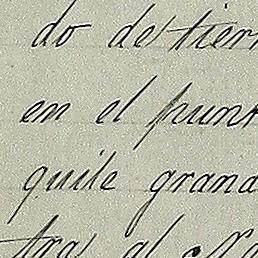 do de tierr
en el punt
quile grand
tras al No